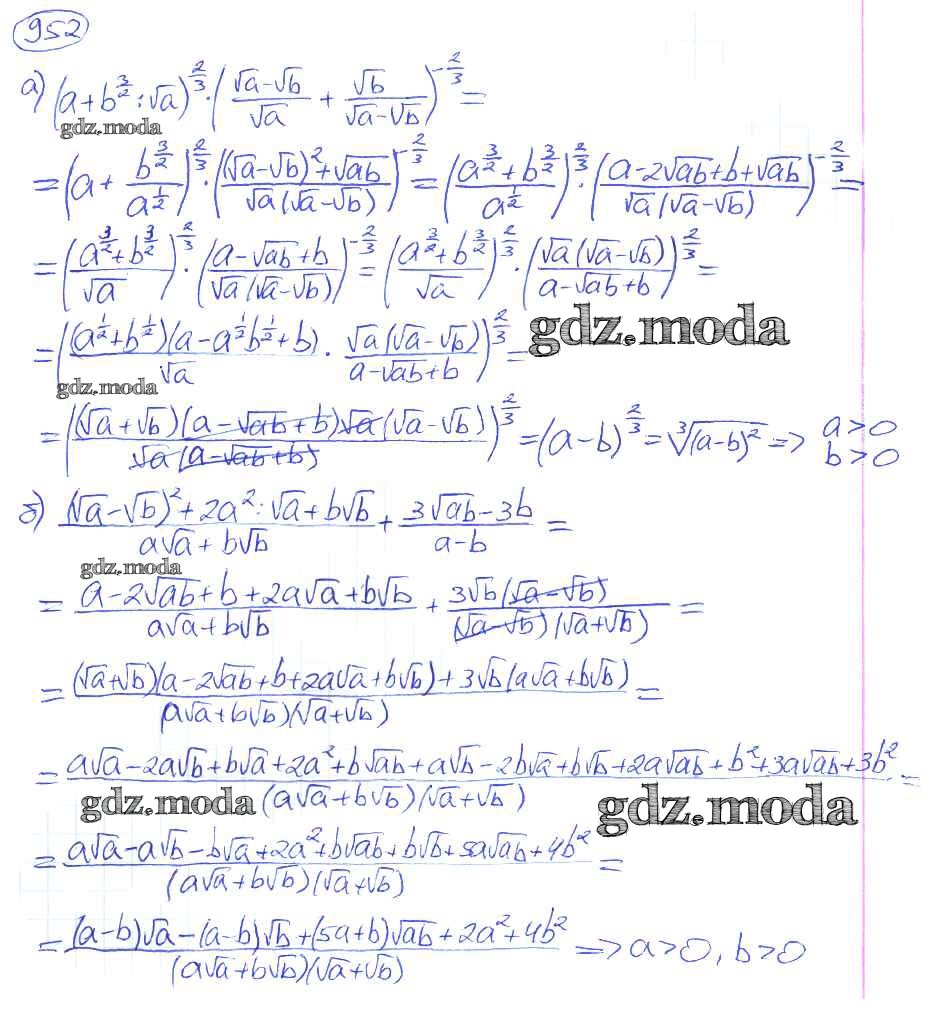 952
а) (a+b^(3/2):√a)^(2/3)·((√a-√b)/√a + √b/(√a-√b))^(-2/3)=
gdz.moda
=(a+ b^(3/2)/a^(1/2))^(2/3)·(((√a-√b)²+√ab)/(√a(√a-√b)))^(-2/3)=((a^(3/2)+b^(3/2))/a^(1/2))^(2/3)·((a-2√ab+b+√ab)/(√a(√a-√b)))^(-2/3)=
=((a^(3/2)+b^(3/2))/√a)^(2/3)·((a-√ab+b)/(√a(√a-√b)))^(-2/3)=((a^(3/2)+b^(3/2))/√a)^(2/3)·((√a(√a-√b))/(a-√ab+b))^(2/3)=
gdz.moda
=(((a^(1/2)+b^(1/2))(a-a^(1/2)b^(1/2)+b))/√a · (√a(√a-√b))/(a-√ab+b))^(2/3)=
gdz.moda
=(((√a+√b)(a-√ab+b)√a(√a-√b))/(√a(a-√ab+b)))^(2/3)=(a-b)^(2/3)=∛(a-b)² => a>0 b>0
б) ((√a-√b)²+2a²:√a+b√b)/(a√a+b√b) + (3√ab-3b)/(a-b)=
gdz.moda
= (a-2√ab+b+2a√a+b√b)/(a√a+b√b) + (3√b(√a-√b))/((√a-√b)(√a+√b)) =
= ((√a+√b)(a-2√ab+b+2a√a+b√b)+3√b(a√a+b√b))/((a√a+b√b)(√a+√b)) =
= (a√a-2a√b+b√a+2a²+b√ab+a√b-2b√a+b√b+2a√ab+b²+3a√ab+3b²)/((a√a+b√b)(√a+√b)) =
gdz.moda
gdz.moda
= (a√a-a√b-b√a+2a²+b√ab+b√b+5a√ab+4b²)/((a√a+b√b)(√a+√b)) =
= ((a-b)√a-(a-b)√b+(5a+b)√ab+2a²+4b²)/((a√a+b√b)(√a+√b)) => a>0, b>0